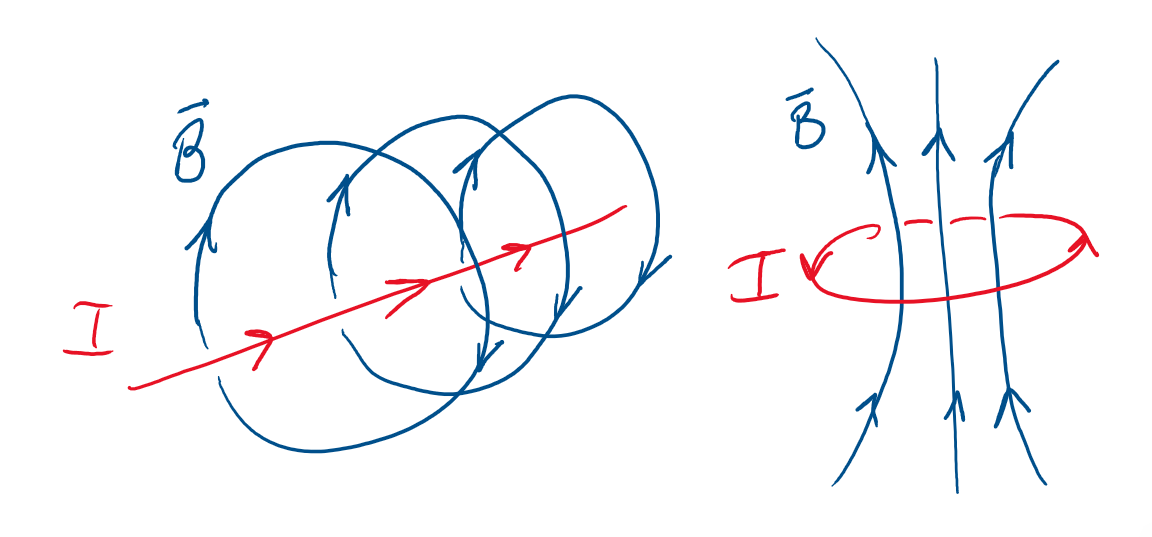 B⃗
I
B⃗
I